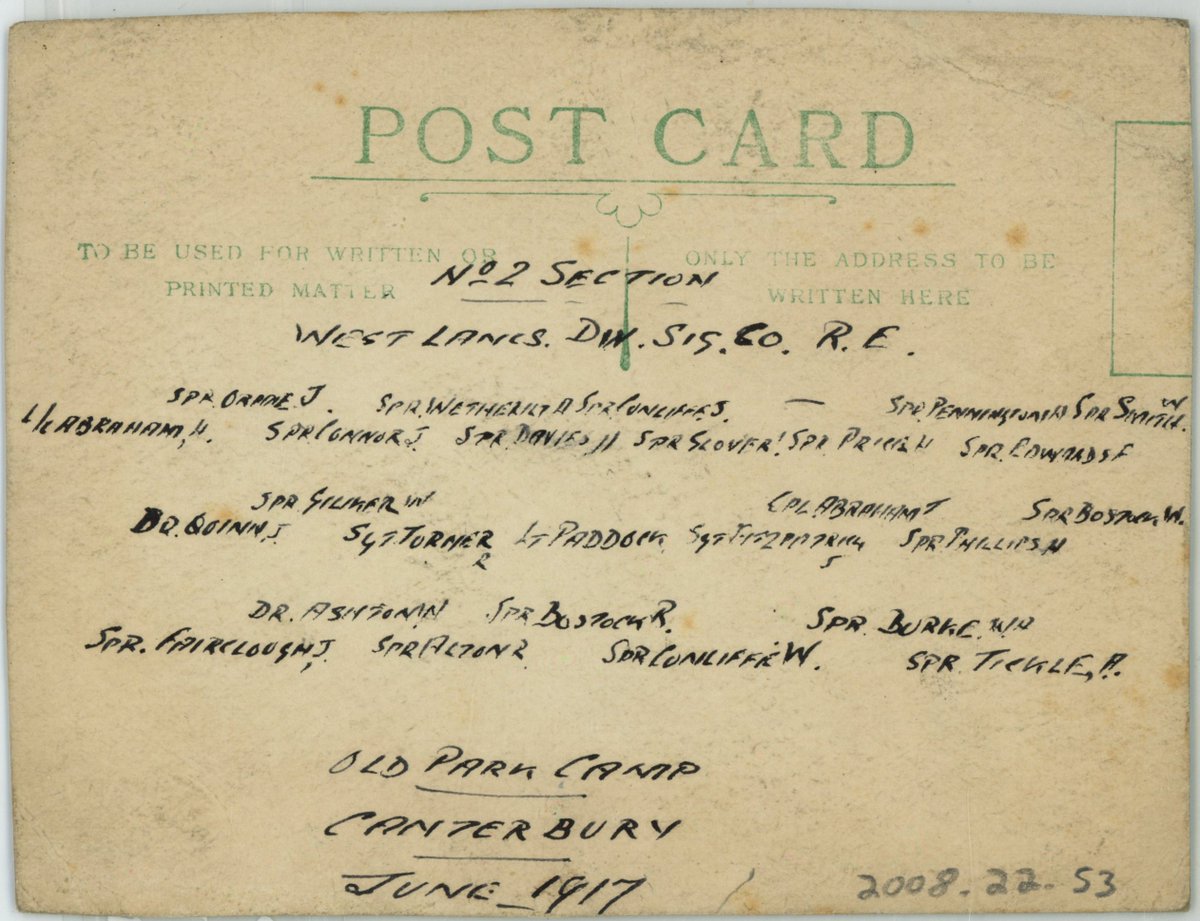 POST CARD
TO BE USED FOR WRITTEN OR
PRINTED MATTER
ONLY THE ADDRESS TO BE
WRITTEN HERE
No 2 SECTION
WEST LANCS. DIV. SIG. CO. R.E.
SPR. J. SPR. WETHERILT A SPR CUNLIFFE J. — SPR. PENNINGTON H SPR SMITH. W
L/C ABRAHAM, H. SPR CONNOR J SPR. DAVIES H SPR GLOVER SPR PRICE H SPR. EDWARDS F
SPR. GILKER W CPL ABRAHAM T SPR BOSTOCK W.
DR. QUINN J. SGT TURNER R LT PADDOCK SGT FITZPATRICK J SPR PHILLIPS H
DR. ASHTON W SPR BOSTOCK R. SPR. BURKE. W.H
SPR. FAIRCLOUGH, J. SPR ALTON R. SPR CUNLIFFE W. SPR. TICKLE, A.
OLD PARK CAMP
CANTERBURY
JUNE_1917
2008.22.53